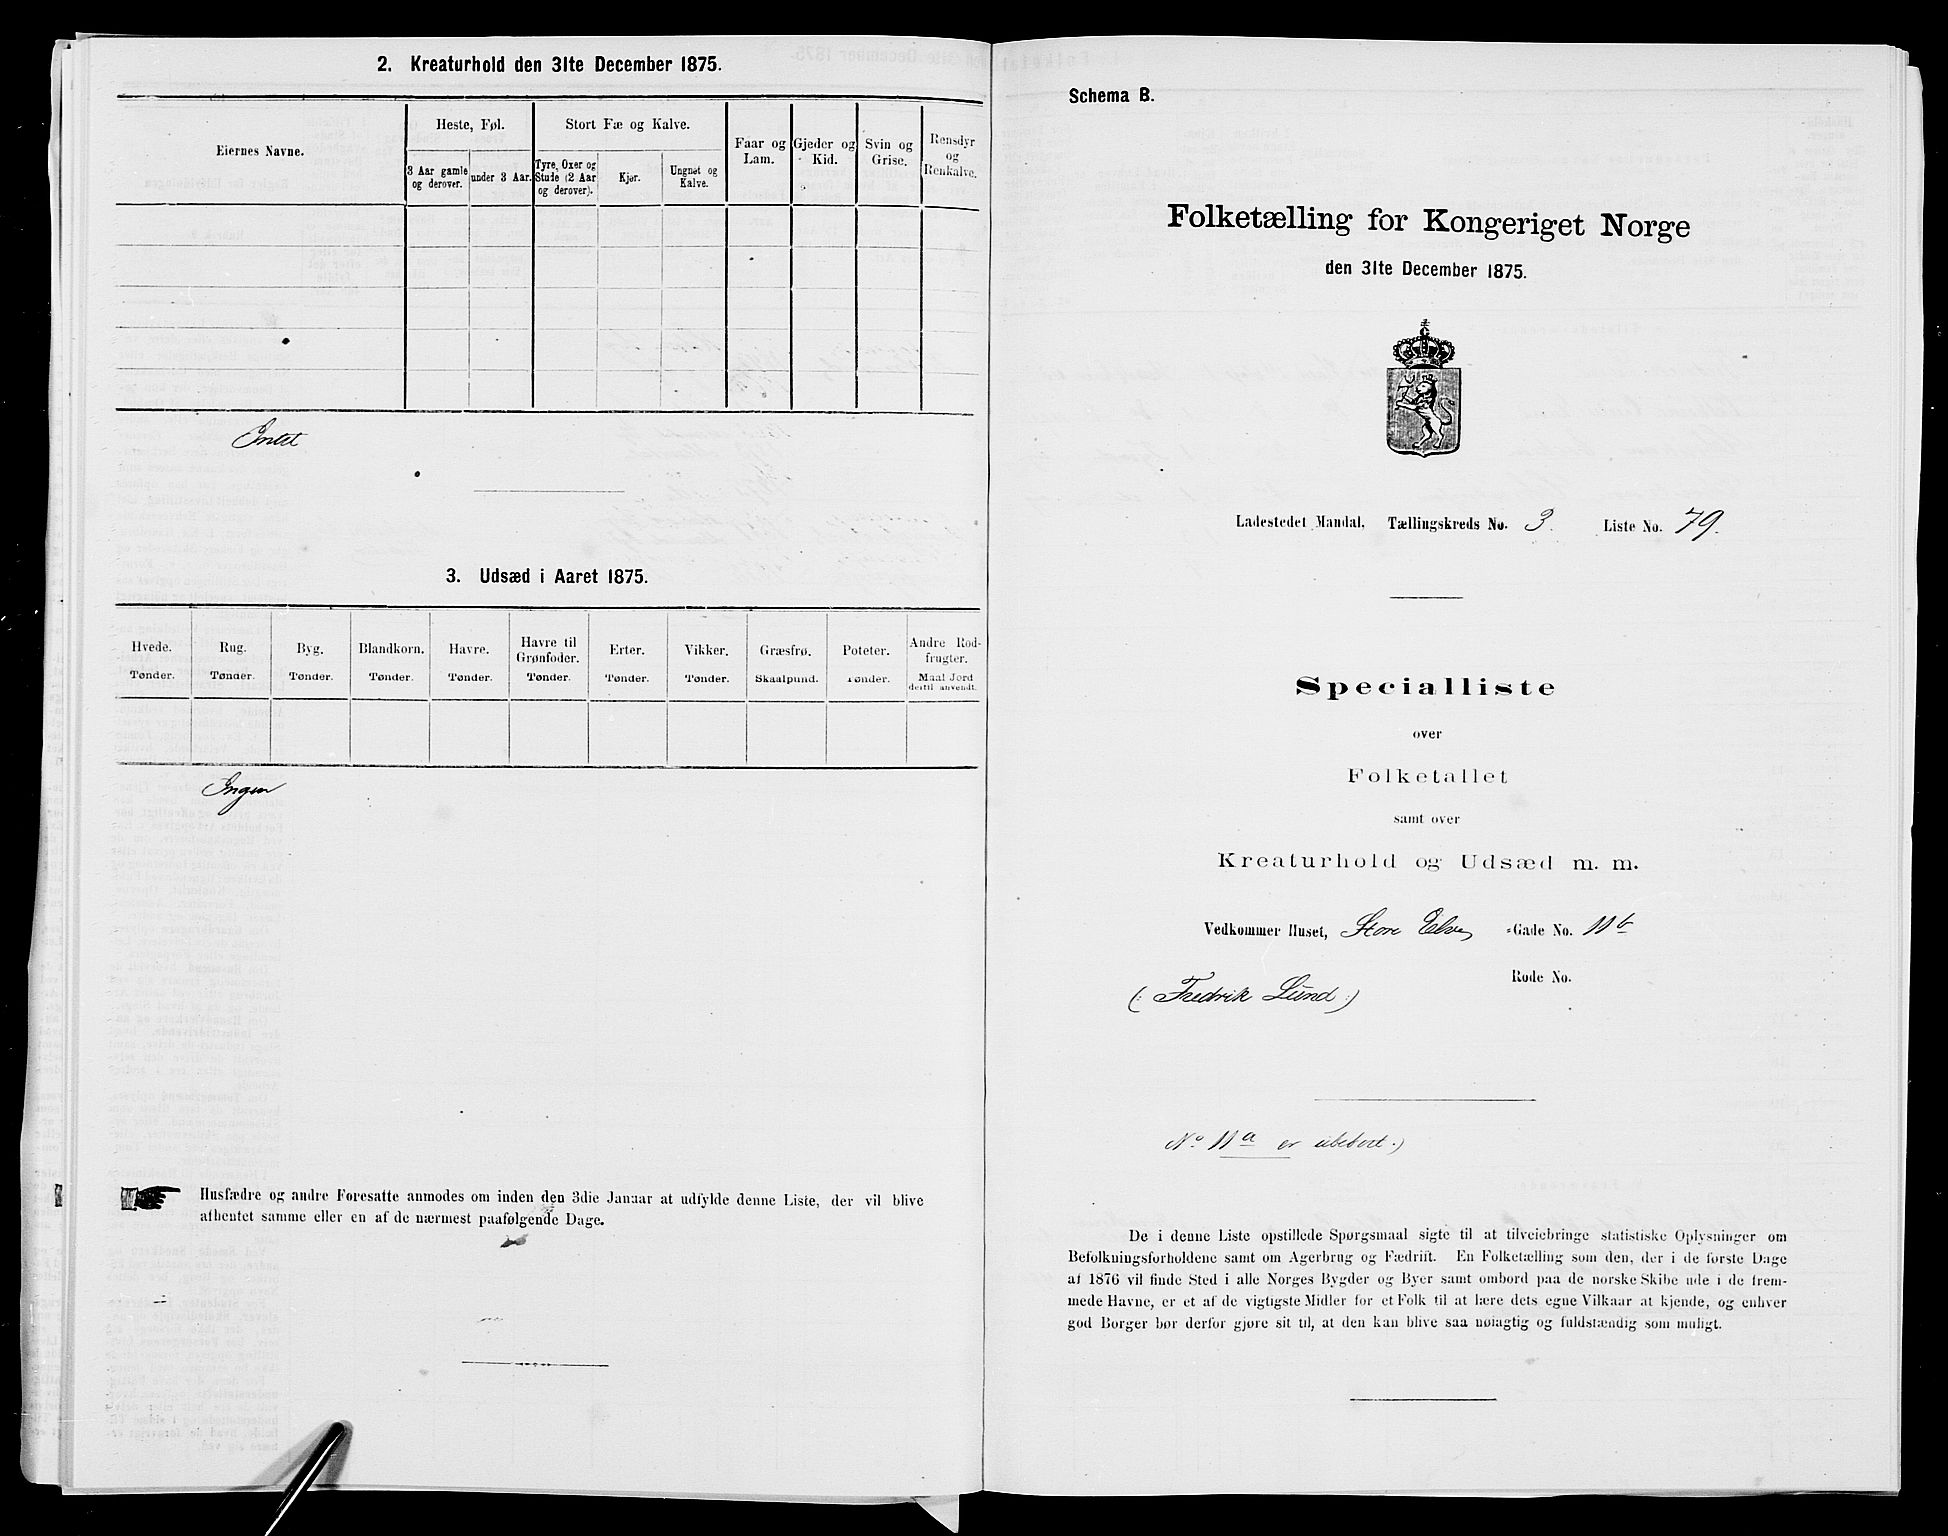 2. Kreaturhold den 31te December 1875.
Eiernes Navne.
Heste, Føl.
Stort Fæ og Kalve.
Faar og
Lam.
Gjeder og
Kid.
Svin og
Grise.
Rensdyr
og
Renkalve.
3 Aar gamle
og derover.
under 3 Aar.
Tyre, Oxer og
Stude (2 Aar
og derover).
Kjør.
Ungnøt og
Kalve.
Intet
3. Udsæd i Aaret 1875.
Hvede.
Tønder.
Rug.
Tønder.
Byg.
Tønder.
Blandkorn.
Tønder.
Havre.
Tønder.
Havre til
Grønfoder.
Tønder.
Erter.
Tønder.
Vikker.
Tønder.
Græsfrø.
Skaalpund.
Poteter.
Tønder.
Andre Rod-
frugter.
Maal Jord
dertil anvendt.
Ingen
Husfædre og andre Foresatte anmodes om inden den 3die Januar at udfylde denne Liste, der vil blive
afhentet samme eller en af de nærmest paafølgende Dage.
Schema B.
Folketælling for Kongeriget Norge
den 31te December 1875.
Ladestedet Mandal, Tællingskreds No. 3. Liste No. 79.
Specialliste
over
Folketallet
samt over
Kreaturhold og Udsæd m. m.
Vedkommer Huset, Store Elve -Gade No. 11b
Rode No.
(: Fredrik Lund :)
No 11a er ubebot.)
De i denne Liste opstillede Spørgsmaal sigte til at tilveiebringe statistiske Oplysninger om
Befolkningsforholdene samt om Agerbrug og Fædrift. En Folketælling som den, der i de første Dage
af 1876 vil finde Sted i alle Norges Bygder og Byer samt ombord paa de norske Skibe ude i de frem-
mede Havne, er et af de vigtigste Midler for et Folk til at lære dets egne Vilkaar at kjende, og enhver
god Borger bør derfor gjøre sit til, at den kan blive saa nøiagtig og fuldstændig som muligt.